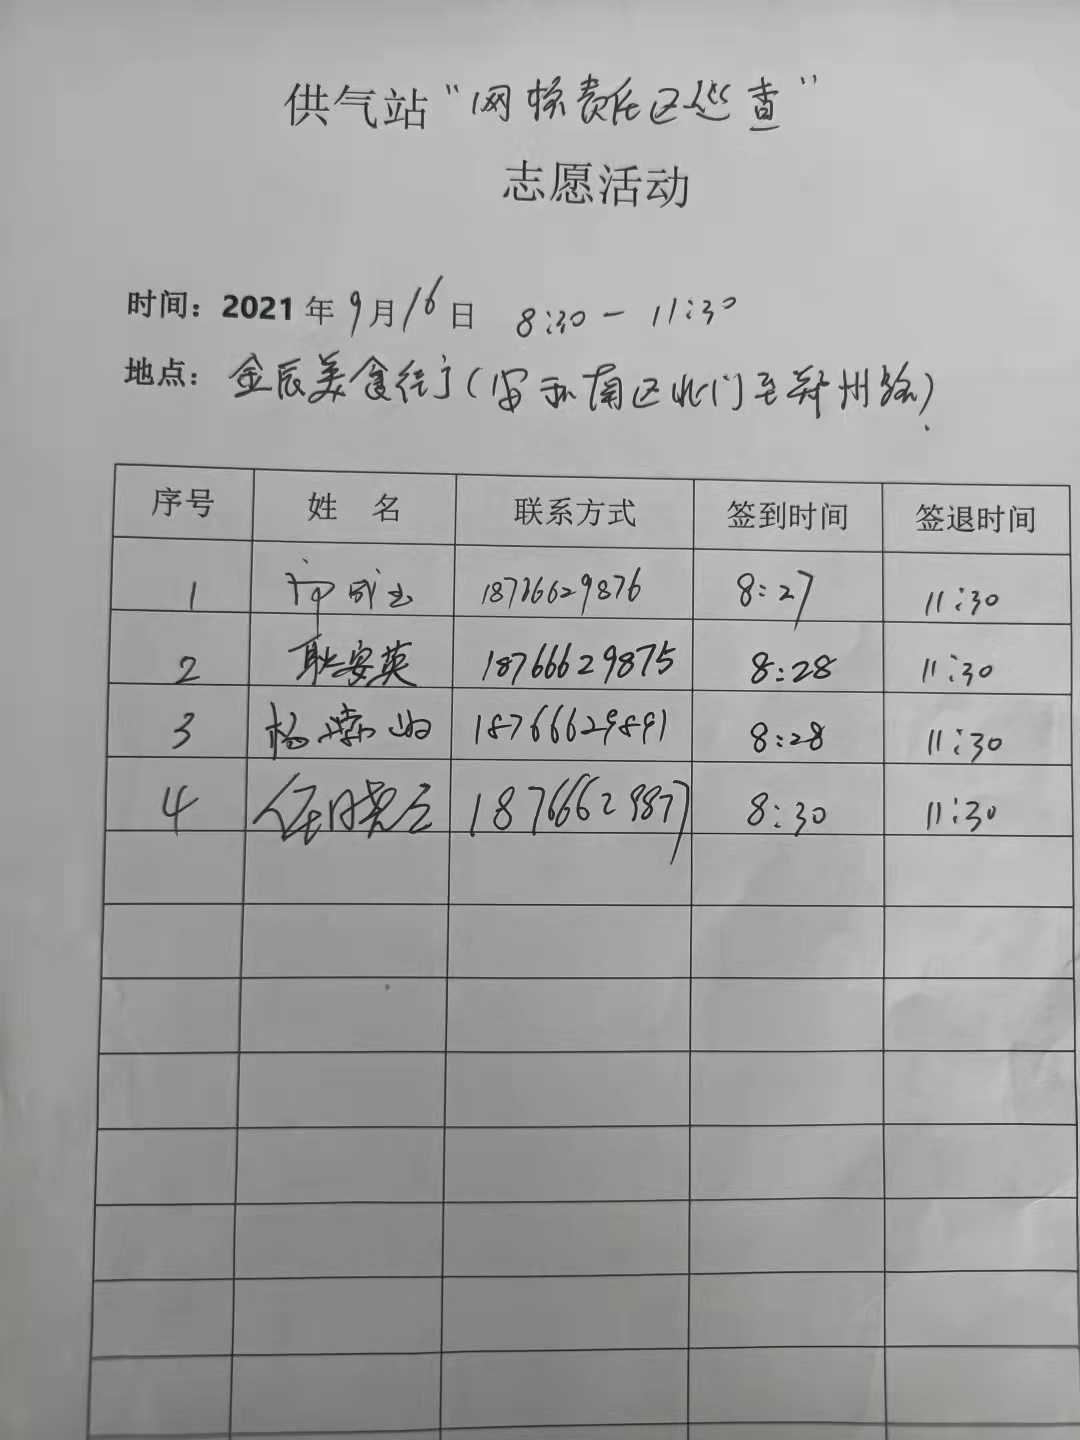 供气站“网格责任区巡查”
志愿活动
时间：2021年9月16日 8:30－11:30
地点：金辰美食街（安和南区北门至郑州路）
序号 姓 名 联系方式 签到时间 签退时间
1 18766629876 8:27 11:30
2 耿安英 18766629875 8:28 11:30
3 杨 18766629891 8:28 11:30
4 任晓云 18766629877 8:30 11:30